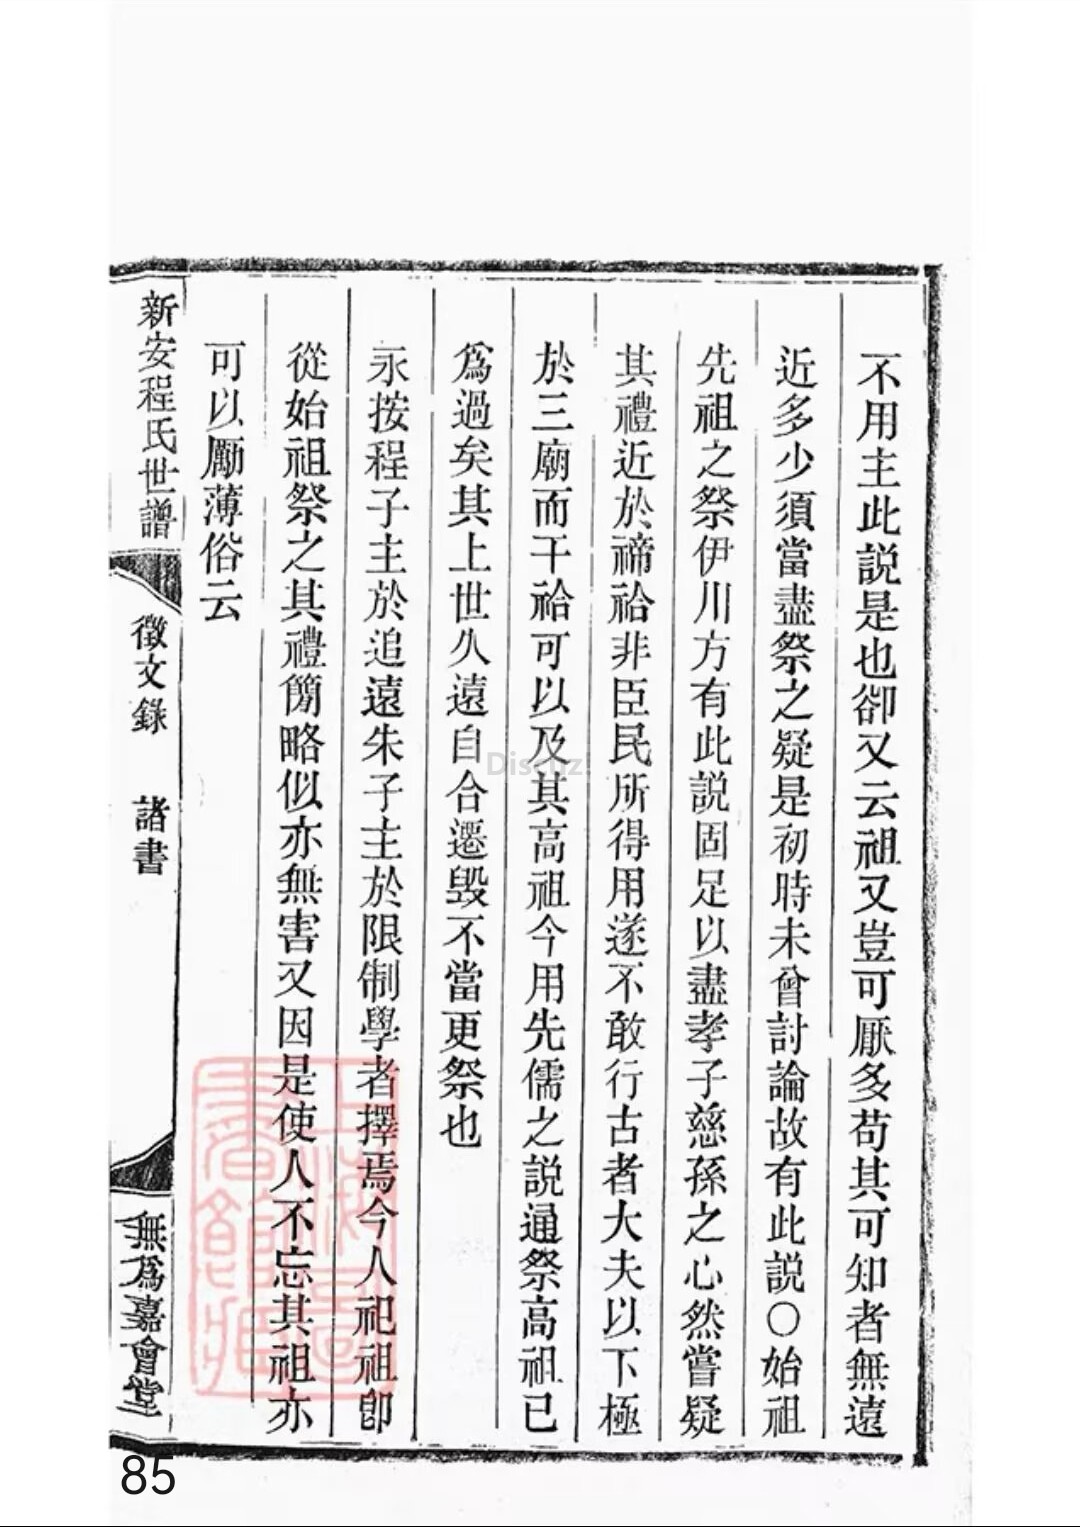 不用主此説是也卻又云祖又豈可厭多苟其可知者無遠
近多少須當盡祭之疑是初時未曾討論故有此説○始祖
先祖之祭伊川方有此説固足以盡孝子慈孫之心然嘗疑
其禮近於禘祫非臣民所得用遂不敢行古者大夫以下極
於三廟而干祫可以及其高祖今用先儒之説通祭高祖已
爲過矣其上世久遠自合遷毀不當更祭也
永按程子主於追遠朱子主於限制學者擇焉今人祀祖卽
從始祖祭之其禮簡略似亦無害又因是使人不忘其祖亦
可以勵薄俗云
新安程氏世譜
徵文錄 諸書
無爲嘉會堂
上海圖書館藏
Discuz!
85